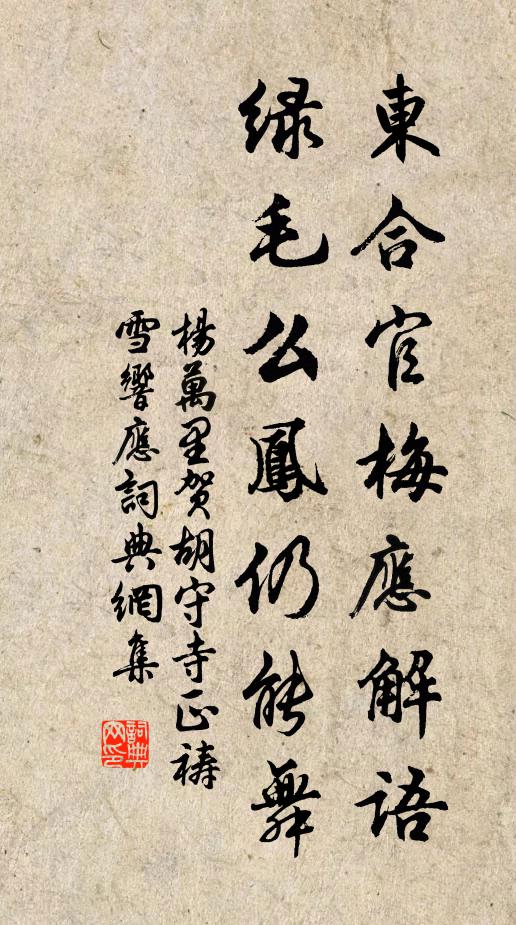 東合官梅應解語
緑毛么鳳仍能舞
楊萬里賀胡守寺正禱
雪響應詞典網集
詞典
网印